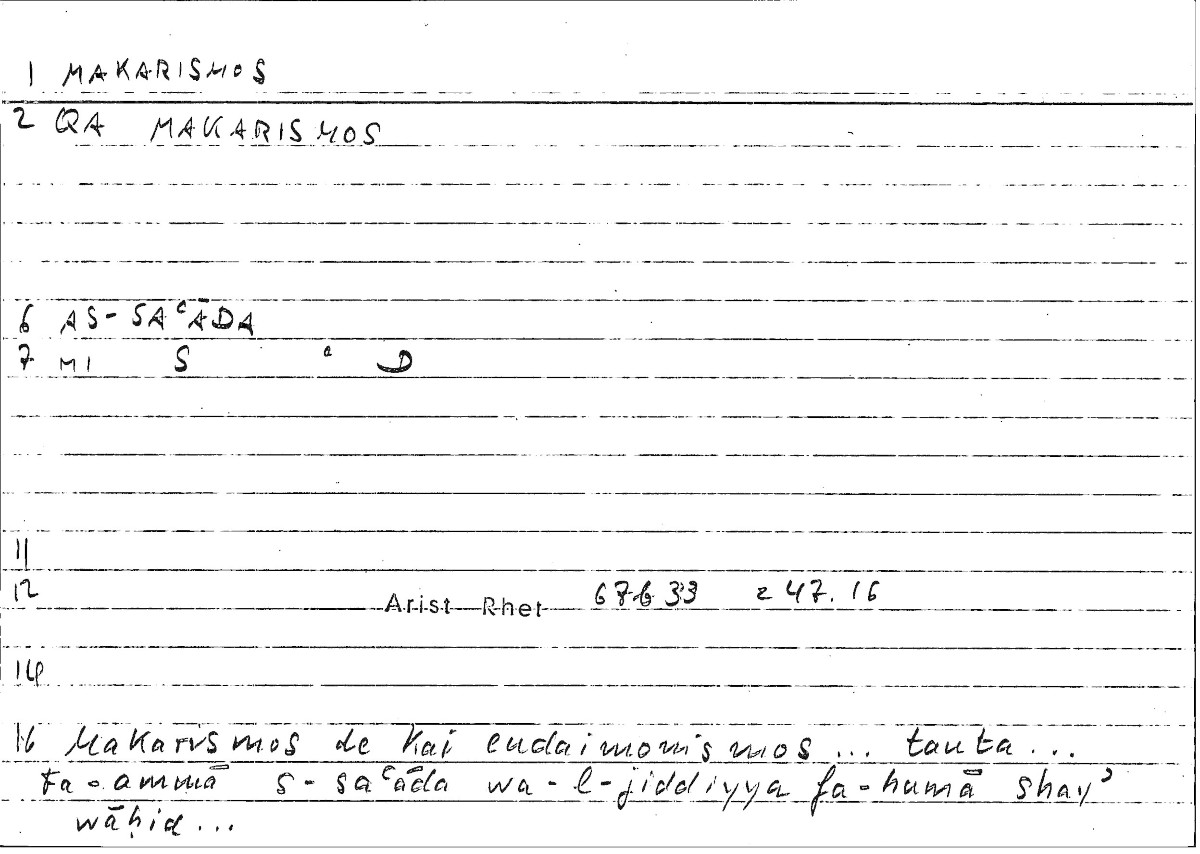 1 MAKARISMOS
2 QA MAKARISMOS
6 AS-SAᶜĀDA
7 MI S ᶜ D
11
12 Arist Rhet 67b33 = 47.16
14
16 Makarismos de kai eudaimonismos ... tauta ...
fa-ammā s-saᶜāda wa-l-jiddiyya fa-humā shayʾ
wāḥid ...